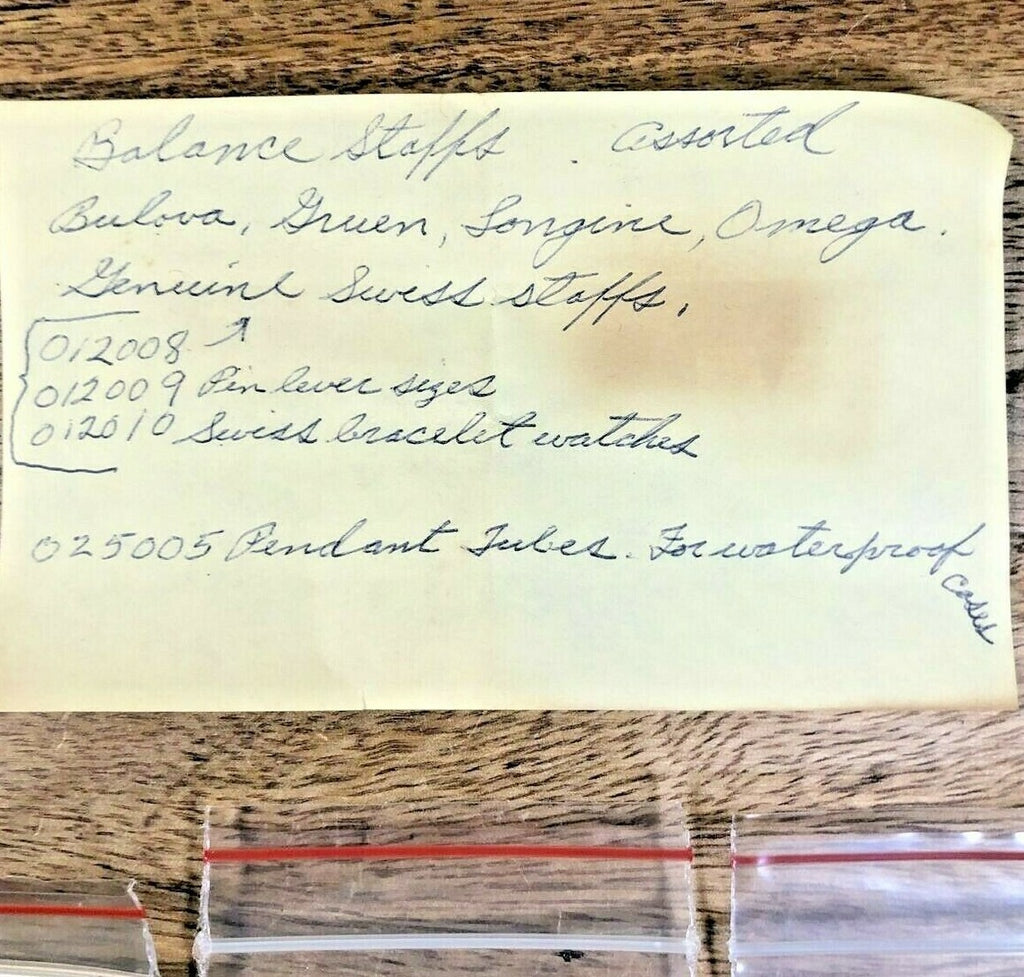 Balance Staffs . assorted
Bulova, Gruen, Longine, Omega.
Genuine Swiss staffs.
012008
012009 Pin lever sizes
012010 Swiss bracelet watches
025005 Pendant Tubes. For waterproof
cases